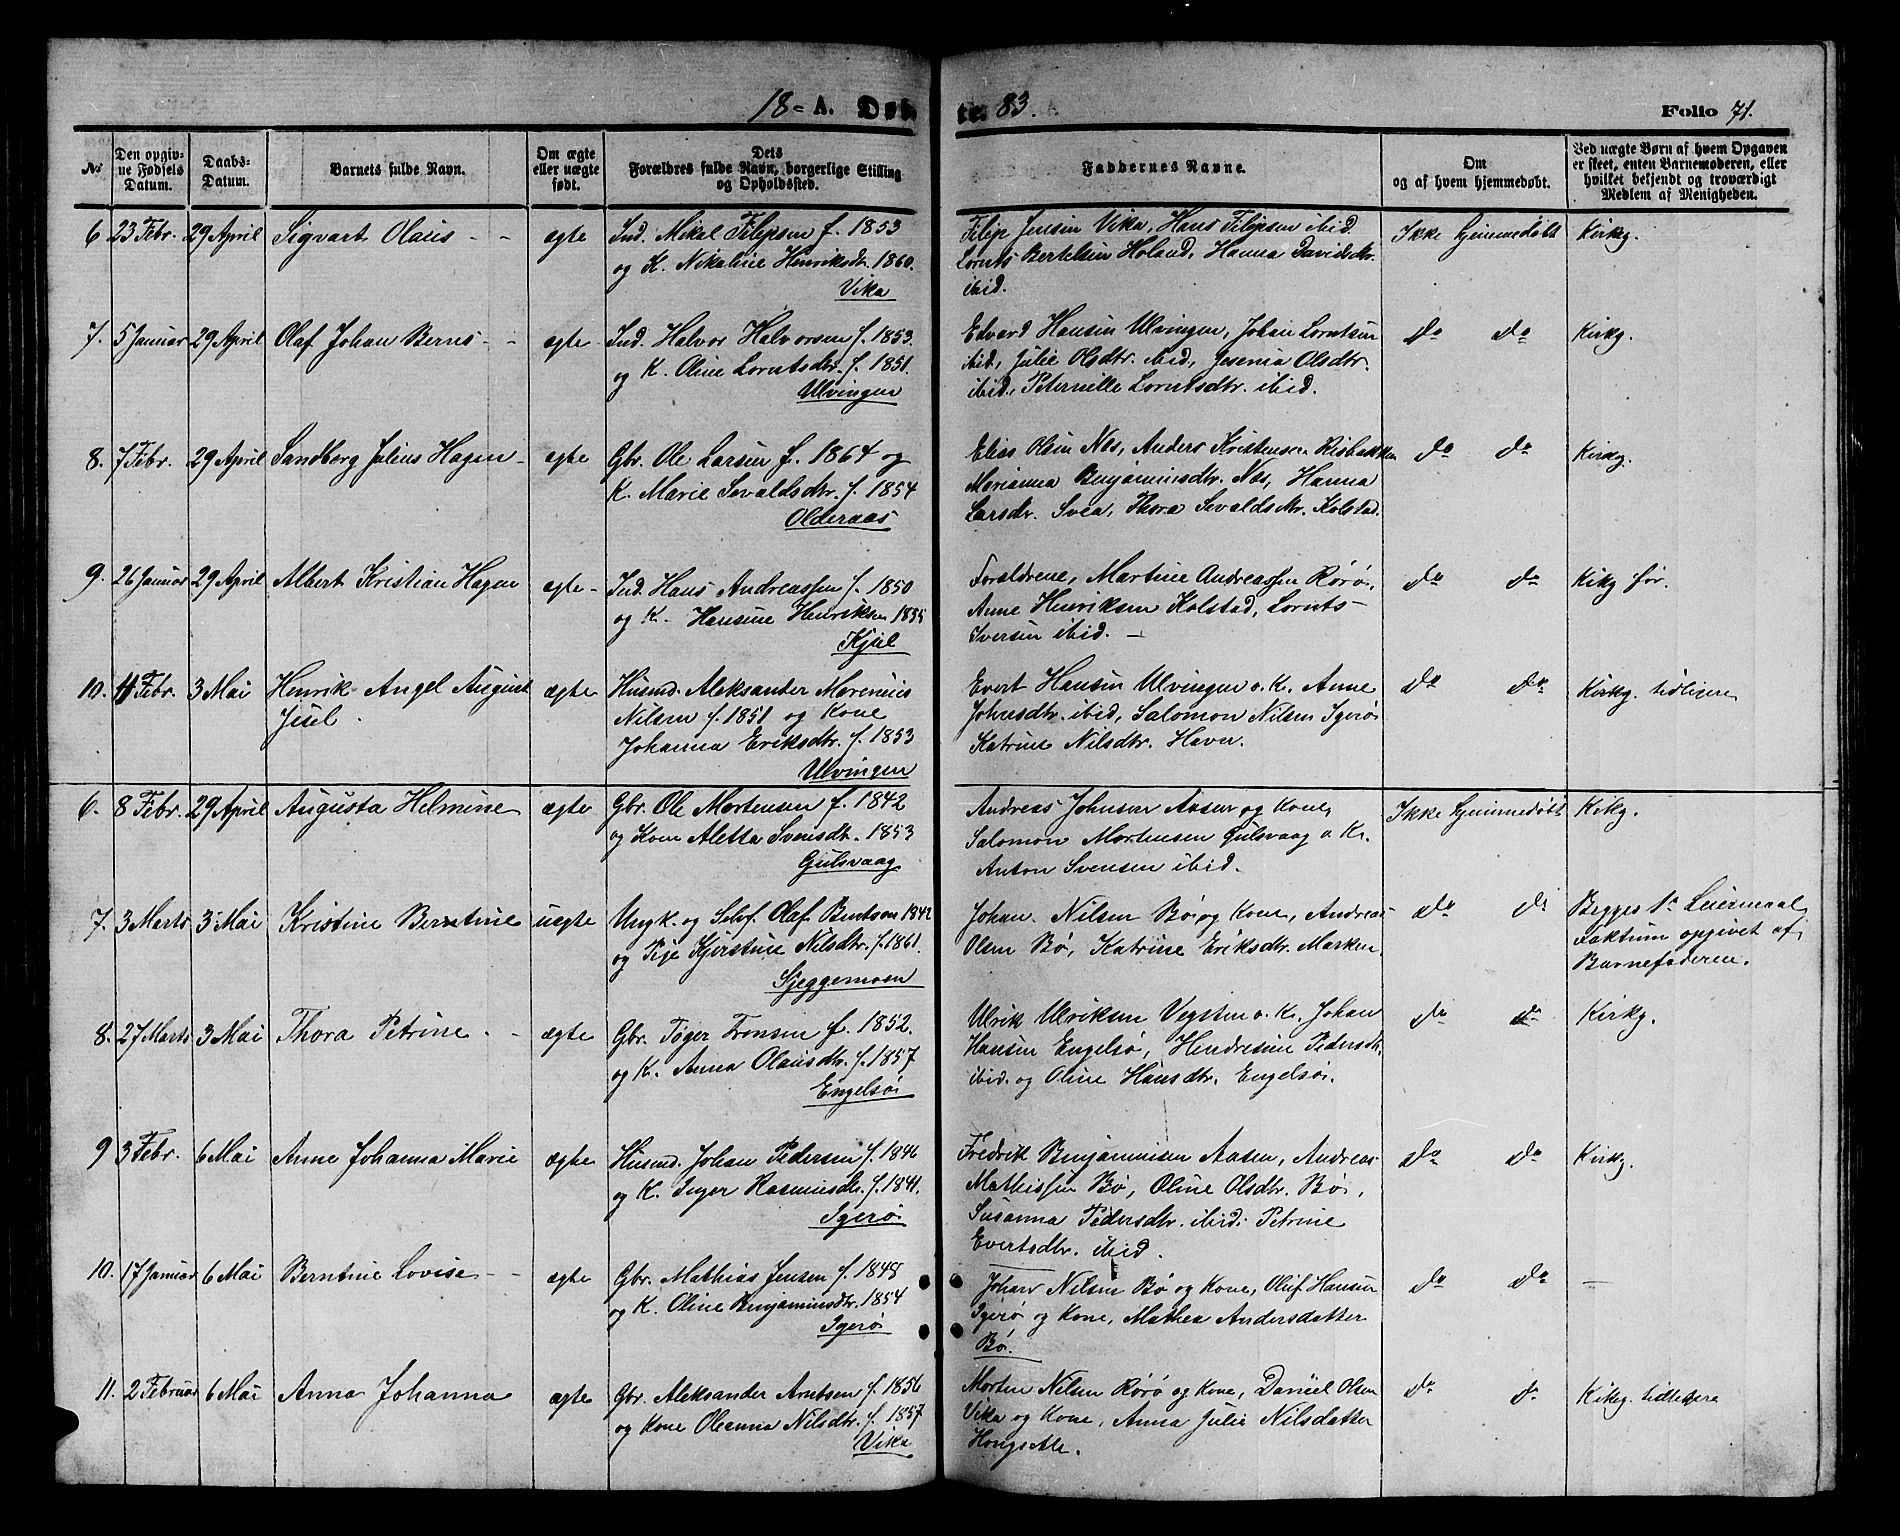 18-A. Døbte. 83. Folio 71.
No
Den opgivne Fødsels Datum.
Daabs-Datum.
Barnets fulde Navn.
Om ægte eller uægte født.
Dets Forældres fulde Navn, borgerlige Stilling og Opholdssted.
Faddernes Navne.
Om og af hvem hjemmedøbt.
Ved uægte Børn af hvem Opgaven er skeet, enten Barnemoderen, eller hvilket bekjendt og troværdigt Medlem af Menigheden.
6 23 Febr. 29 April Sigvart Olaus - - ægte Ind. Mikal Filipsen f. 1853 Filip Jensen Vika, Hans Filipsen ibid Ikke hjemmedøbt Kirkg.
og K. Nikoline Henriksdtr. 1860. Lornts Bertelsen Høland, Hanna Davidsdtr.
Vika ibid.
7. 5 Januar 29 April Olaf Johan Bernes - - ægte Ind. Halvor Halvorsen f. 1853. Edvard Hansen Ulvingen, Johan Lorntsen do do Kirkg.
og K. Oline Lorntsdtr. f. 1851. ibid, Julie Olsdtr. ibid, Jesenia Olsdtr.
Ulvingen ibid, Peternille Lorntsdtr. ibid.
8. 7 Febr. 29 April Sandberg Julius Hagen - ægte Gbr. Ole Larsen f. 1864 og Elias Olsen Nes, Anders Kristensen Risbakken do do Kirkg.
K. Marie Sevaldsdtr. f. 1854 Marianna Benjaminsdtr. Nes, Hanna
Olderaas Larsdtr. Svea, Thora Sevaldsdtr. Kolstad.
9. 26 Januar 29 April Albert Kristian Hagen ægte - Ind. Hans Andreassen f. 1850 Forældrene, Martine Andreassen Rørø, do do Kikg før.
og K. Hansine Henriksen 1855 Anne Henriksen Kolstad, Lornts
Kjul Iversen ibid. -
10. 11 Febr. 3 Mai Henrik Angel August ægte Husmd. Aleksander Morenius Evert Hansen Ulvingen o. K. Anne do do Kirkg. tidligere
Jisel. Nilsen f. 1851 og Kone Johnsdtr. ibid, Salomon Nilsen Igerø
Johanna Eriksdtr. f. 1853 Katrine Nilsdtr. Havn.
Ulvingen
6. 8 Febr. 29 April Augusta Helmine ægte Gbr. Ole Mortensen f. 1842 Andreas Johnsen Aasen og Kone, Ikke hjemmedøbt Kikg.
og Kone Aletta Svensdtr. 1853 Salomon Mortensen Gulsvaag o K.
Gulsvaag Anton Svensen ibid.
7. 3 Marts 3 Mai Kristine Berntine uægte Ungk. og Selvf. Olaf Bentsen 1842 Johan Nilsen Bø og Kone, Andreas do do Begges 1e Leiermaal
og Pige Kjerstine Nilsdtr. f. 1861. Olsen Bø, Katrine Eriksdtr. Marken Faktum opgivet af
Sjeggemoen Barnefaderen.
8. 27 Marts 3 Mai Thora Petrine - - ægte Gbr. Toger Tronsen f. 1852. Ulrik Ulriksen Vegsten o. K. Johan do do Kirkg.
og K. Anna Olausdtr. f. 1857 Hansen Engelsø, Hendresine Pedersdtr.
Engelsø. ibid. og Oline Hansdtr. Engelsø.
9 3 Febr. 6 Mai Anne Johanna Marie ægte Husmd. Johan Pedersen f. 1846 Fredrik Benjaminsen Aasen, Andreas do do Kirkg.
og K. Inger Rasmusdtr. f. 1841. Mathissen Bø, Oline Olsdtr. Bø,
Igerø Susanna Pedersdtr. ibid. Petrine
Evertsdtr. ibid.
10. 17 Januar 6 Mai Berntine Lovise - - ægte Gbr. Mathias Jensen f. 1848 Johan Nilsen Bø og Kone, Oluf Hansen do do -
og K. Oline Benjaminsdtr. 1854 Igerø og Kone, Mathea Andersdatter
Igerø Bø.
11. 2 Februar 6 Mai Anna Johanna ægte Gbr. Aleksander Arntsen f. 1856 Morten Nilsen Rørø og Kone, Daniel Olsen do do Kikeg. tidligere
og Kone Oleanna Nilsdtr. f. 1857 Vika og Kone, Anna Julie Nilsdatter
Vika Hongsetle.